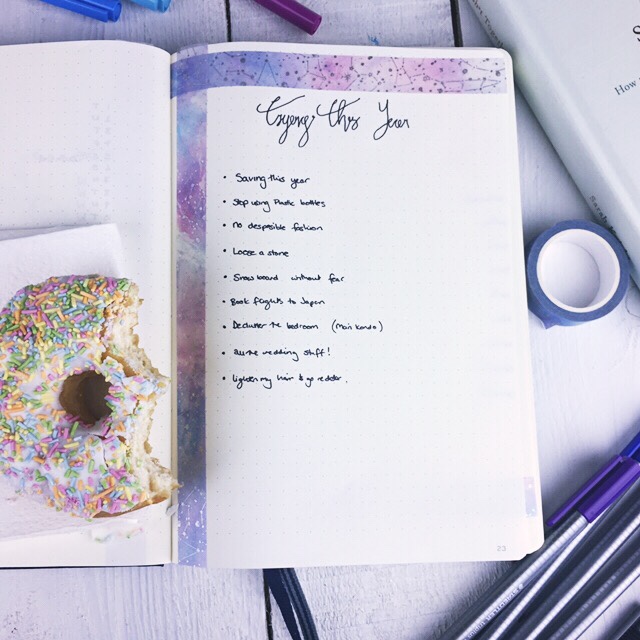 Trying This Year
• Saving this year
• Stop using Plastic bottles
• no desposible fashion
• Loose a stone
• Snowboard without fear
• Book flights to Japan
• Declutter the bedroom (Mari Kondo)
• all the wedding stuff!
• lighten my hair & go redder.
23
S
How